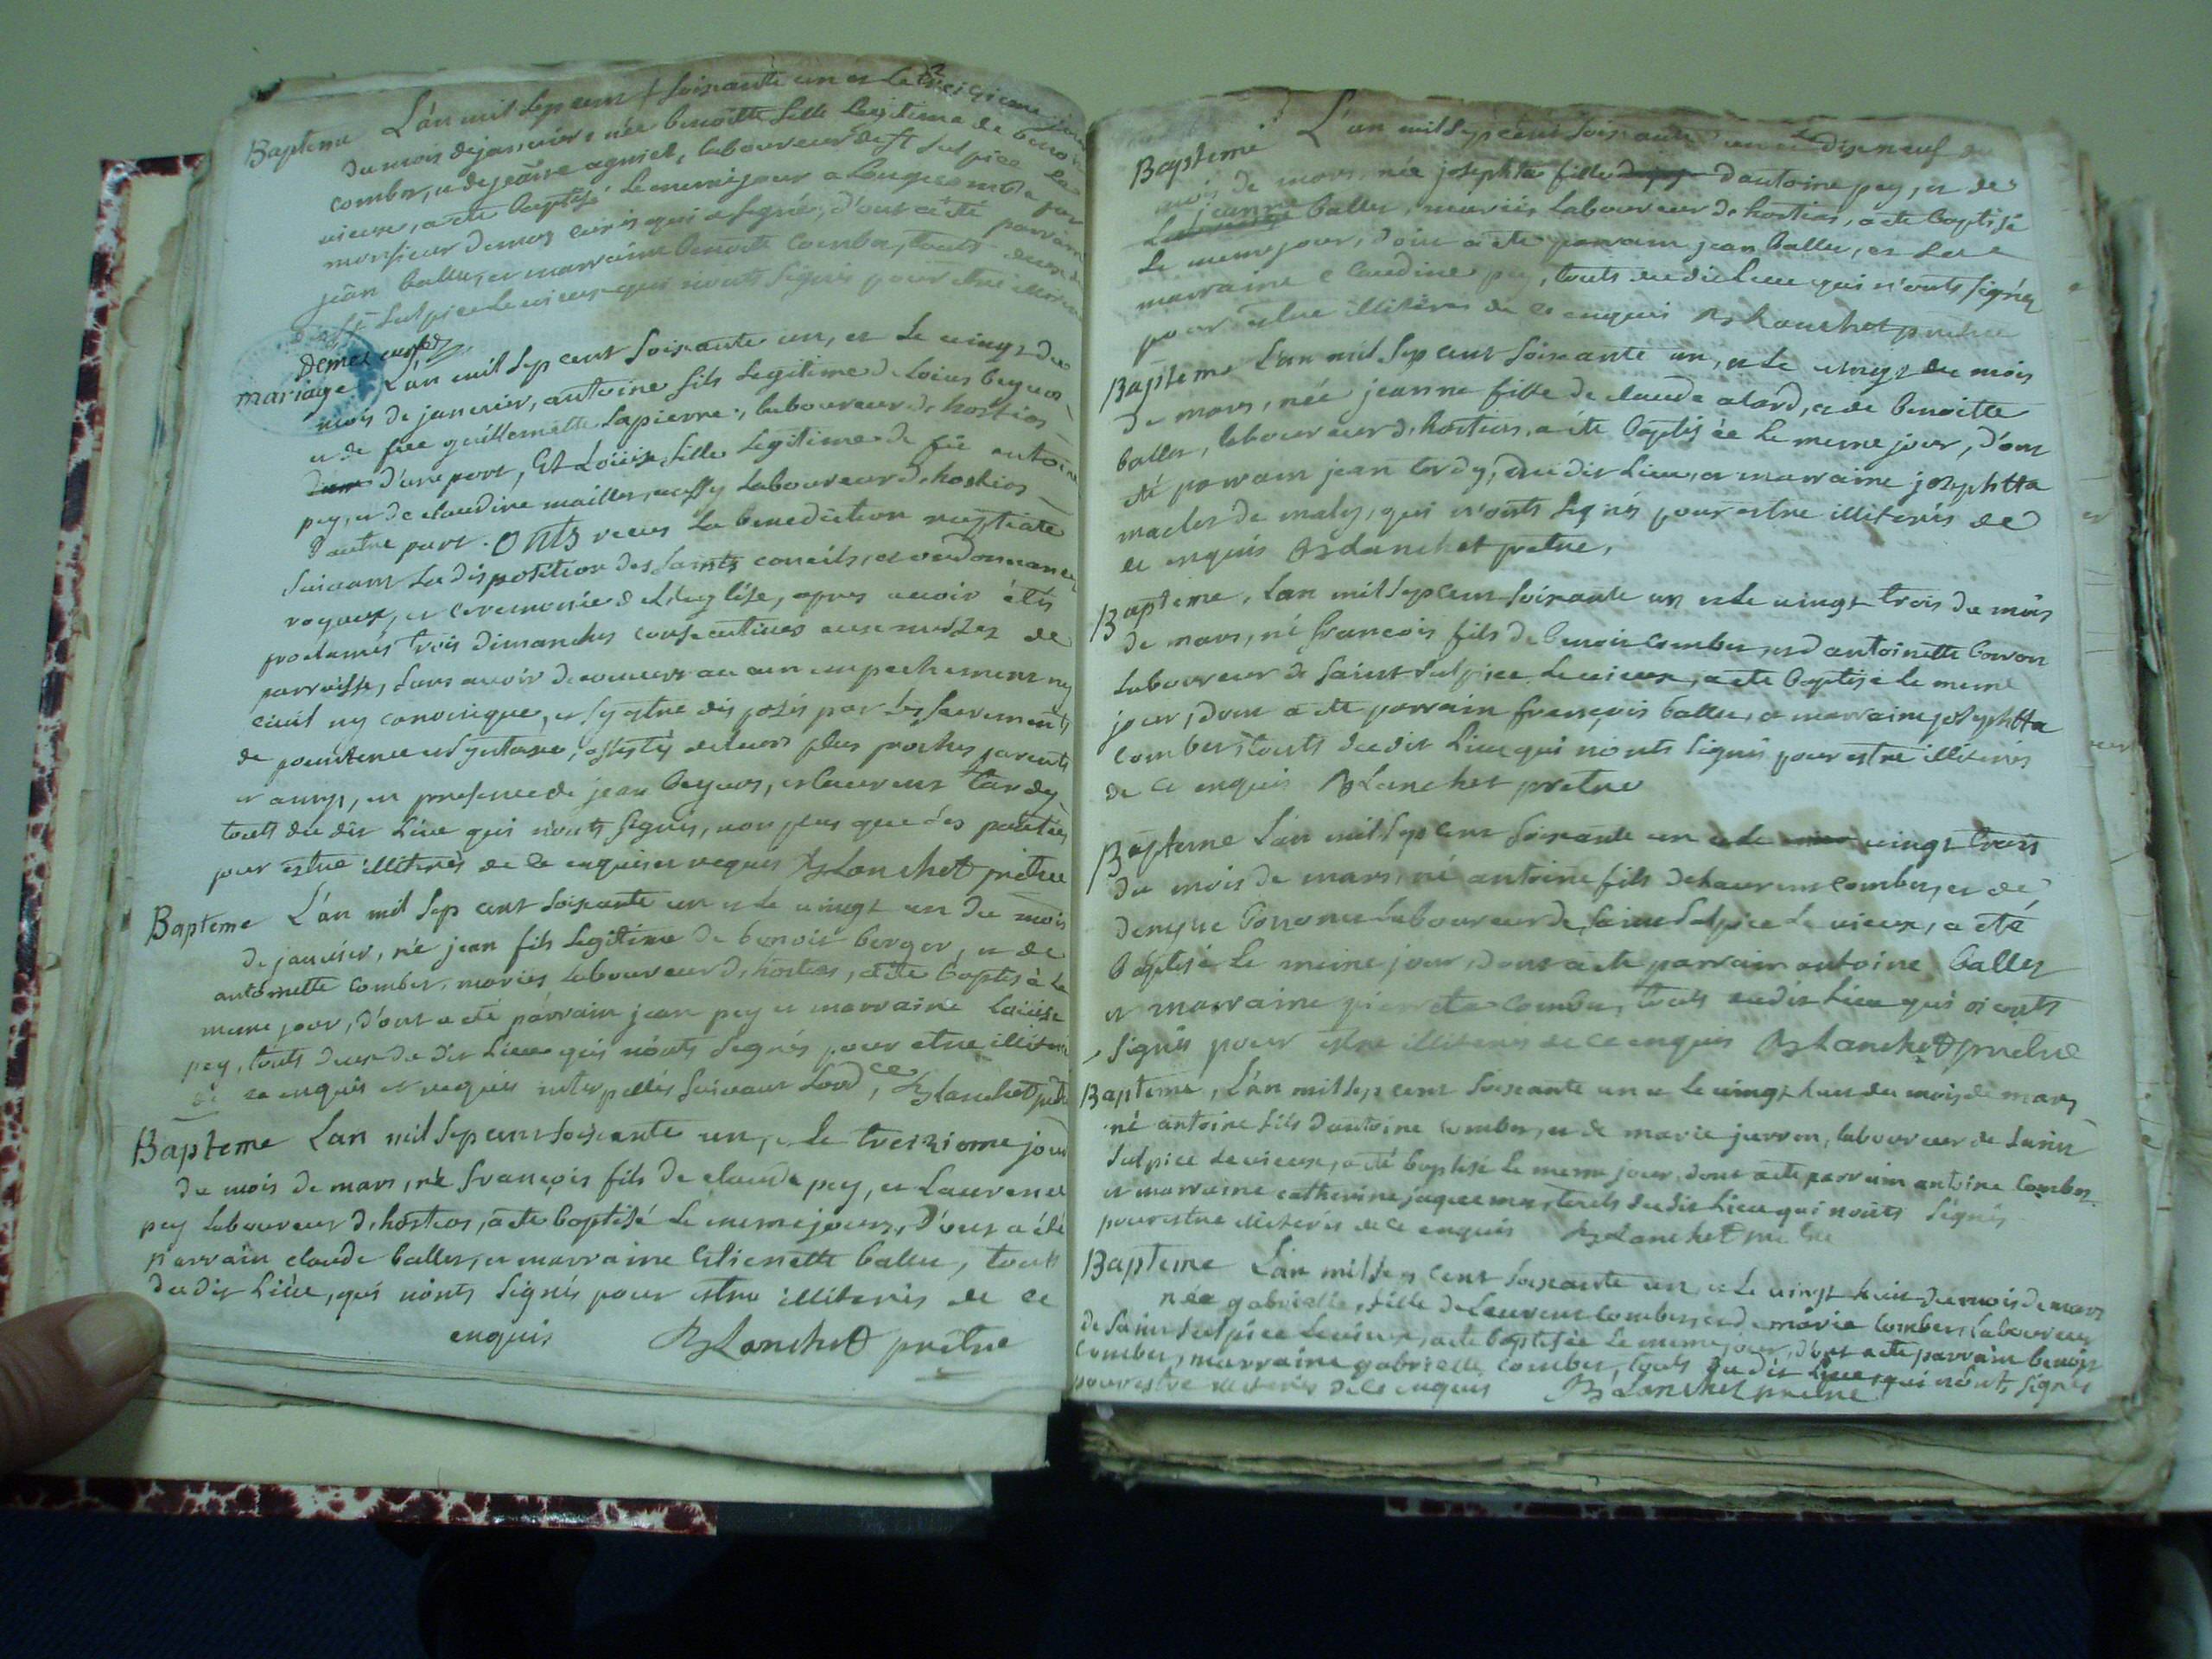 Bapteme L'an mil sept cent soixante un et le treizieme jour
du mois de janvier née benoitte fille legitime de benoit
combes, et de jeanne agniel, laboureur de st sulpice le
vieux, a été baptisé le meme jour a Longecombe par
monsieur demey curé qui a signé, d'ont a été parrain
jean balley et marraine benoite combes, touts deux de
st sulpice le vieux qui n'onts signés pour etre illiteres
demey curé
mariage L'an mil sept cent soixante un, et le vingt du
mois de janvier, antoine fils legitime de Loius beyuos
et de feue guillemette Lapierre, laboureur d'hostias
d'une part, Et Loüise fille legitime de feu antoine
pey, et de claudine mailler, aussy laboureur d'hostias
d'autre part. Onts receus la benediction nuptiale
suivant la disposition des saints concils, et ordonnances
royaux, et ceremonie de l'eglise, apres avoir étés
proclamés trois dimanches consecutives aux messes de
parroisse, sans avoir decouvert aucun empechement ny
civil ny canonique, et s'y estre disposés par les sacrements
de penitence et d', assistés de leurs plus proches parents
et amys, en presence de jean beyuos, et laurent tardy
touts du dit Lieu qui n'onts signés, non plus que les parties
pour estre illiterés de ce enquis et requis Blanchet prêtre
Bapteme L'an mil sept cent soixante un et le vingt un du mois
de janvier, né jean fils legitime de benoit berger, et de
antoinette combes, mariés laboureur d'hostias, a été baptisé le
meme jour, d'ont a été parrain jean pey et marraine Loüise
pey, touts deux du dit Lieu qui n'onts signés pour etre illiteres
de ce enquis et requis interpellés suivant Lord ce, Blanchet prêtre
Bapteme Lan mil sept cent soixante un, et le treizieme jour
du mois de mars, né françois fils de claude pey, et Laurence
pey laboureur d'hostias, a été baptisé le meme jour, d'ont a été
parrain claude balley, et marraine Estienette balley, touts
du dit Lieu, qui n'onts signés pour estre illiterés de ce
enquis Blanchet prêtre
Bapteme L'an mil sept cent soixante un et le dix neuf du
mois de mars, née josephta fille d'antoine pey, et de
jeanne balley, mariés laboureur de hostias, a été baptisé
le meme jour, d'ont a été parrain jean balley, et la
marraine claudine pey, touts du dit Lieu qui n'onts signés
pour estre illiterés de ce enquis Blanchet prêtre
Bapteme L'an mil sept cent soixante un, et le vingt du mois
de mars, née jeanne fille de claude alard, et de benoitte
balley, laboureur d'hostias, a été baptisée le meme jour, d'ont
été parrain jean tardy, du dit Lieu, et marraine josephtta
macler de maley, qui n'onts signés pour estre illiterés de
ce enquis Blanchet prêtre,
Bapteme, Lan mil sept cent soixante un et le vingt trois du mois
de mars, né françois fils de benoit combes et d'antoinette borron
laboureur de saint sulpice le vieux, a été baptisé le meme
jour, dont a été parrain françois balley, et marraine josephtta
combes touts du dit Lieu qui n'onts signés pour estre illiterés
de ce enquis Blanchet prêtre
Bapteme L'an mil sept cent soixante un et le vingt trois
du mois de mars, né antoine fils de Laurent combes, et de
denyse laboureur de saint sulpice le vieux, a été
baptisé le meme jour, dont a été parrain antoine balley
et marraine pierrete combes, touts du dit Lieu qui n'onts
signés pour estre illiterés de ce enquis Blanchet prêtre
Bapteme, L'an mil sept cent soixante un et le vingt huit du mois de mars
né antoine fils d'antoine combes, et de marie jurron, laboureur de saint
sulpice le vieux, a été baptisé le meme jour, dont a été parrain antoine combes
et marraine catherine jaquemet, touts du dit Lieu qui n'onts signés
pour estre illiterés de ce enquis Blanchet prêtre
Bapteme L'an mil sept cent soixante un, et le vingt huit du mois de mars
née gabrielle, fille de Laurent combes, et de marie combes laboureur
de saint sulpice le vieux, a été baptisée le meme jour, d'ont a été parrain benoit
combes, marraine gabrielle combes, touts du dit Lieu, qui n'onts signés
pour estre illiterés de ce enquis Blanchet prêtre